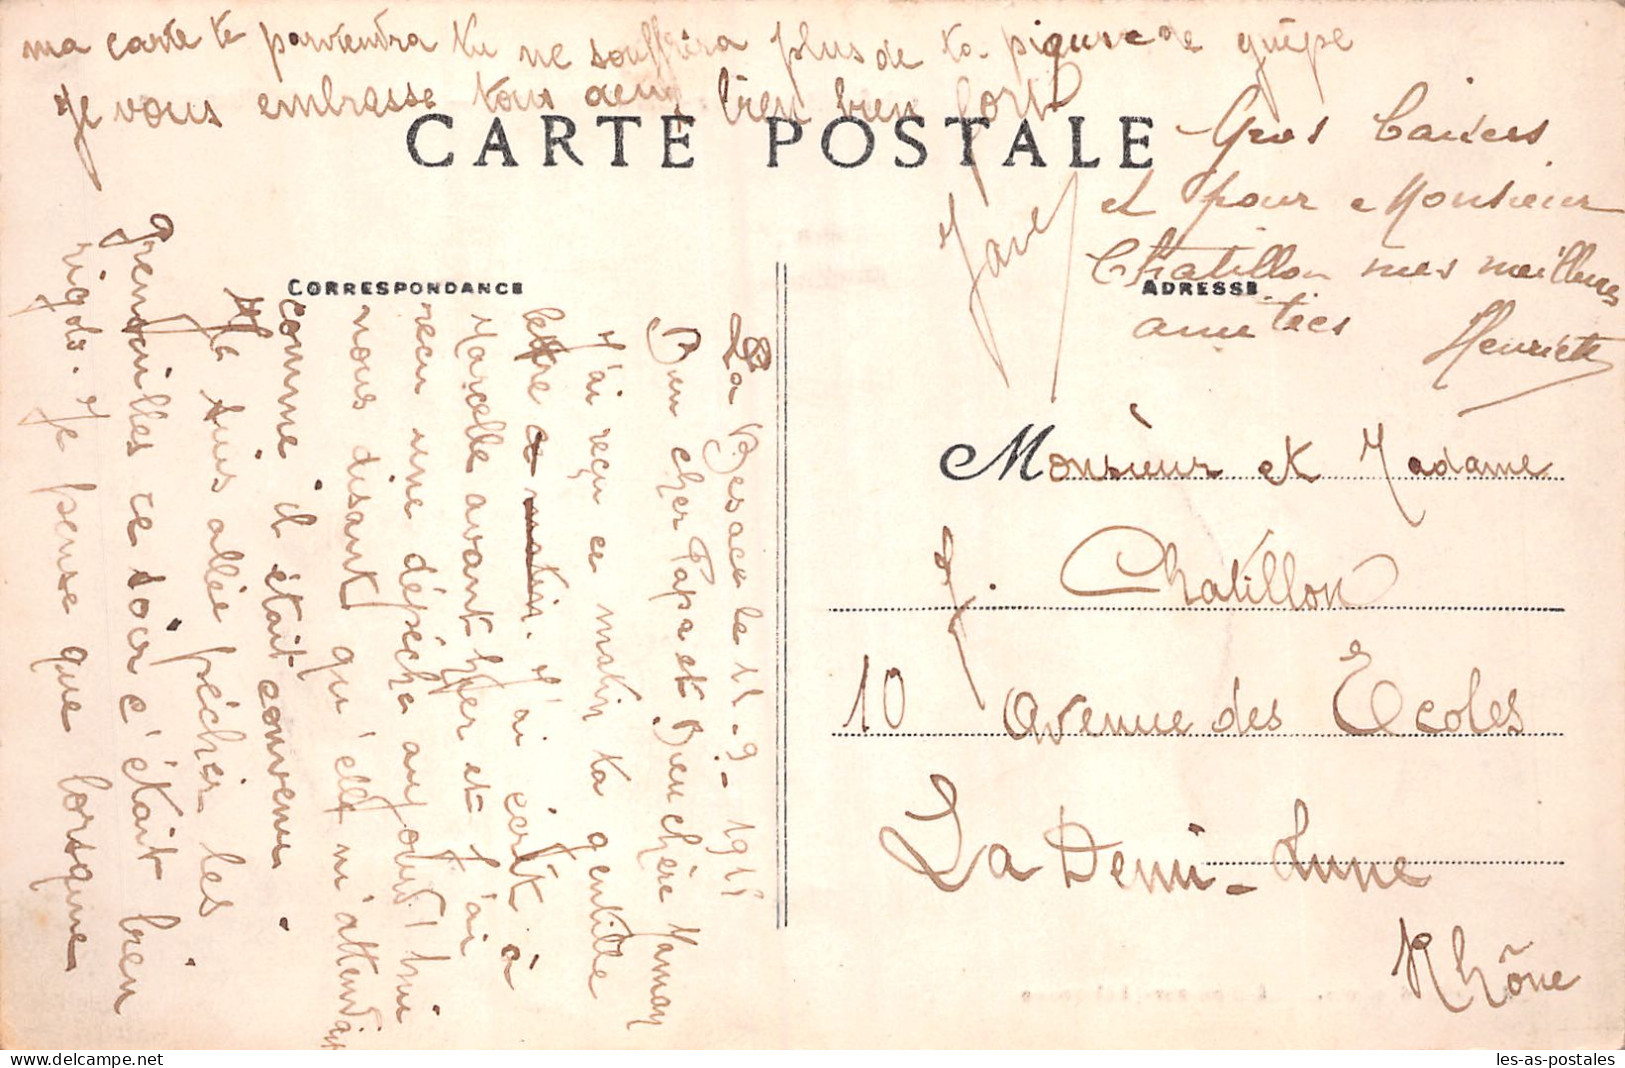 CARTE POSTALE
CORRESPONDANCE
La Besace le 11-9-1911
Bien cher Papa et Bien chère Maman
J'ai reçu ce matin ta gentille
lettre ce matin. J'ai écrit à
Marcelle avant hier et j'ai
reçu une dépêche aujourd'hui
nous disant qu'elle m'attendait
comme il était convenu.
Je suis allée pêcher les
grenouilles ce soir c'était bien
rigolo. Je pense que lorsque
ma carte te parviendra tu ne souffrira plus de ta piqure de guêpe
Je vous embrasse tous deux bien bien fort
Gros baisers
et pour Monsieur
Chatillon mes meilleures
amitiés
Henriette
ADRESSE
Monsieur et Madame
J. Chatillon
10 avenue des Ecoles
La Demi-Lune
Rhône
les-as-postales